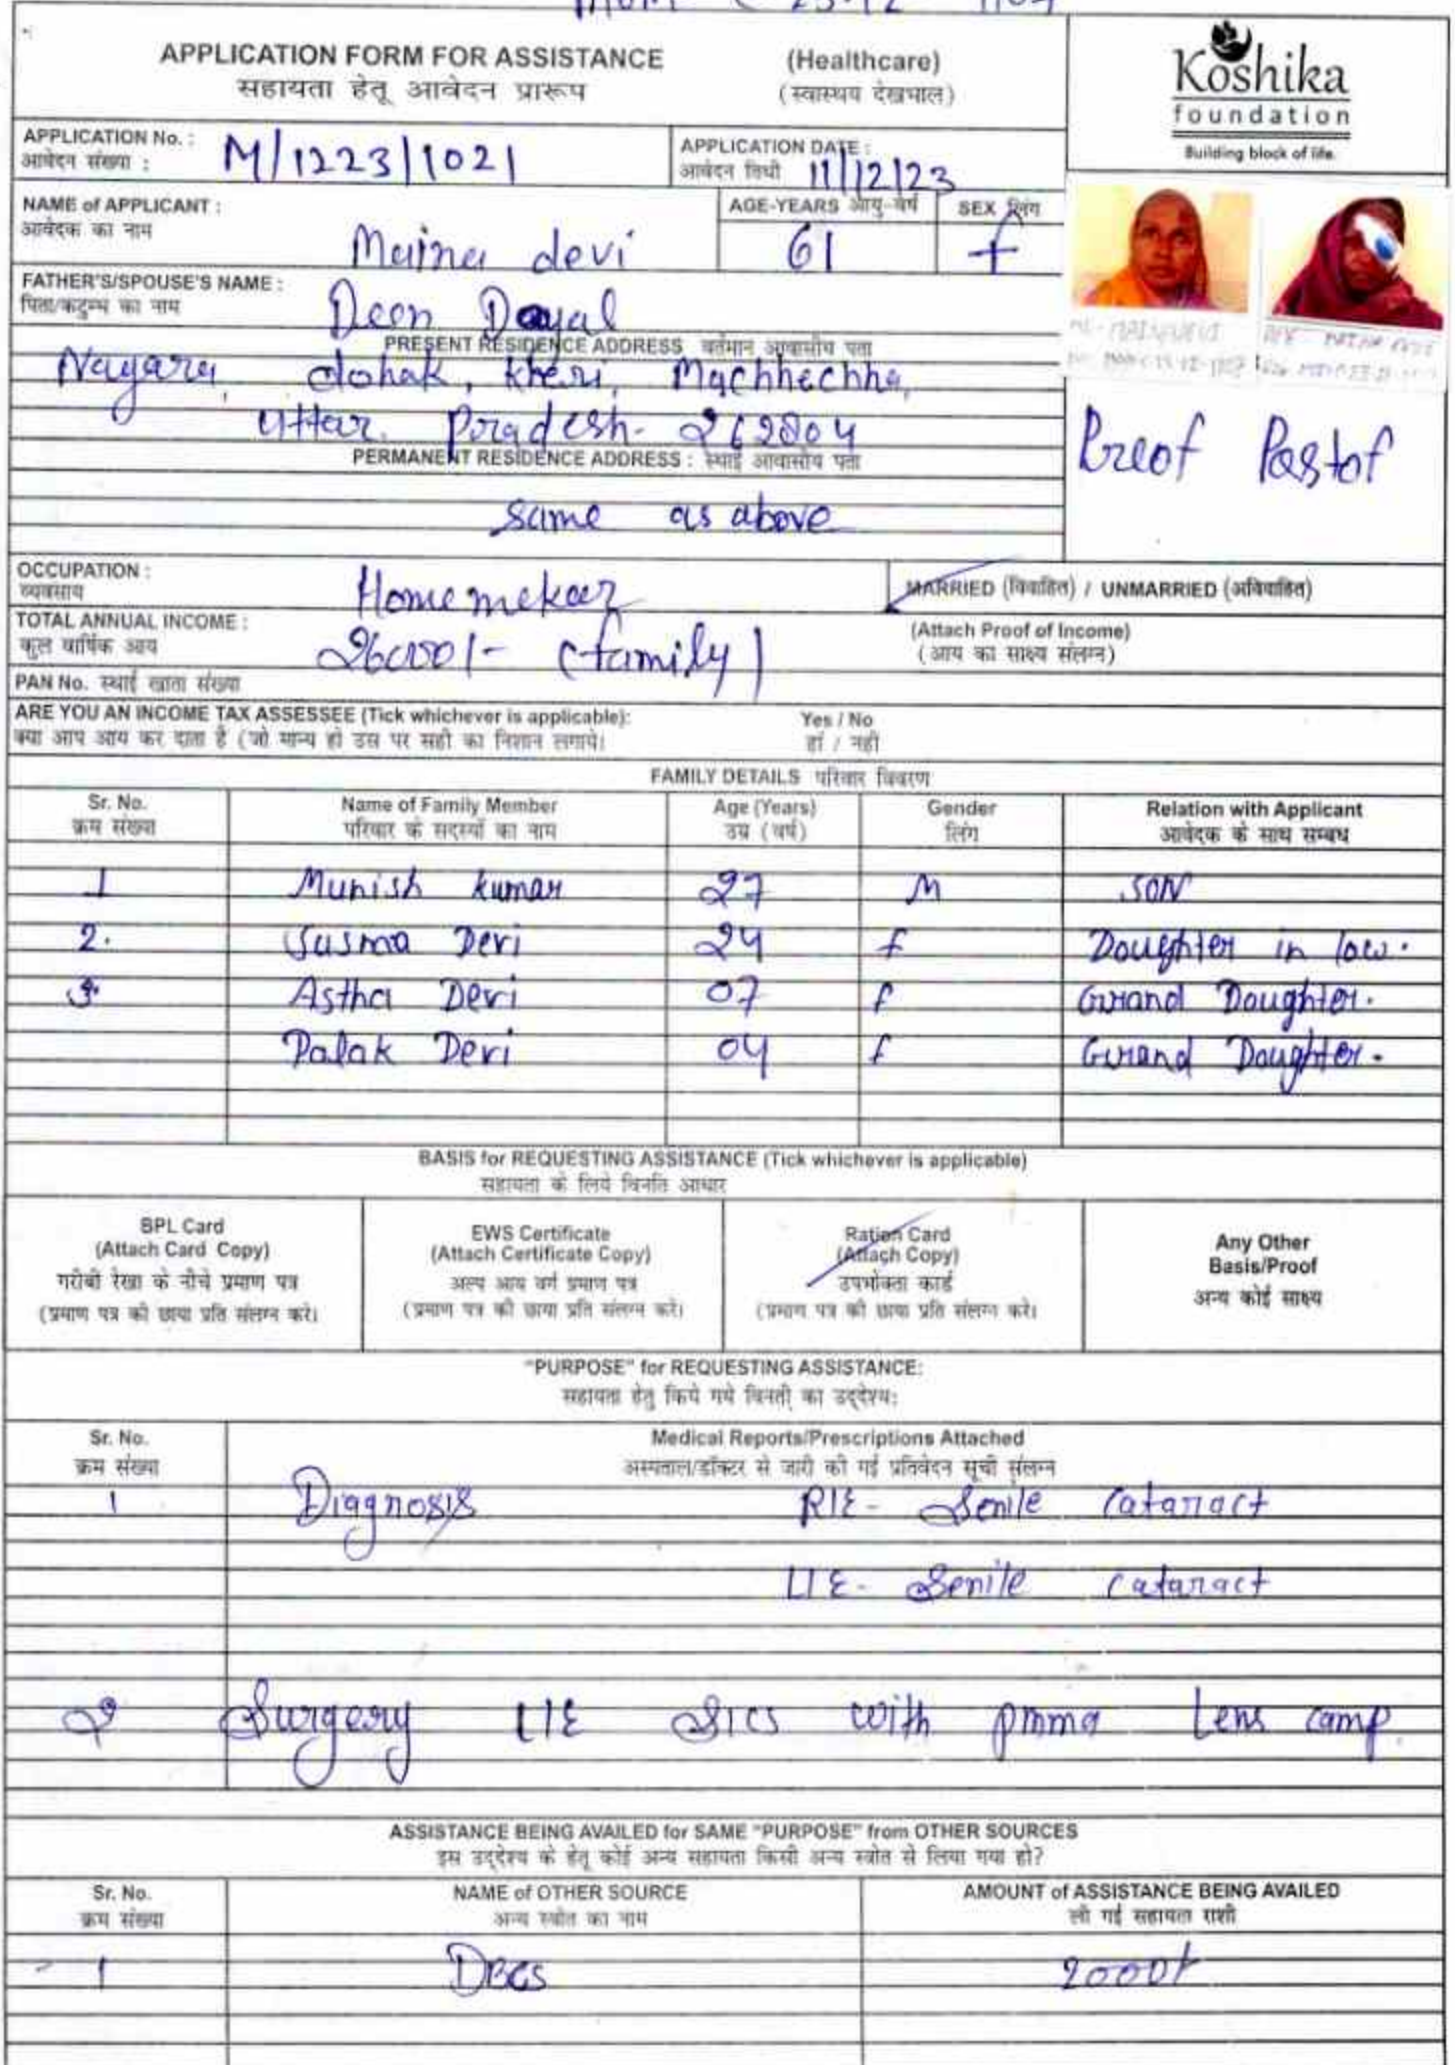 APPLICATION FORM FOR ASSISTANCE (Healthcare)
सहायता हेतू आवेदन प्रारूप (स्वास्थय देखभाल)
Koshika
foundation
Building block of life.
APPLICATION No. : M/1223/1021
आवेदन संख्या :
APPLICATION DATE : 11/12/23
आवेदन तिथी
NAME of APPLICANT : Maina devi
आवेदक का नाम
AGE-YEARS आयु-वर्ष 61
SEX लिंग f
FATHER'S/SPOUSE'S NAME : Deen Dayal
पिता/कटुम्ब का नाम
PRESENT RESIDENCE ADDRESS वर्तमान आवासीय पता
Nagara, dohak, kheri, Machhechha,
Uttar Pradesh- 262804
PERMANENT RESIDENCE ADDRESS : स्थाई आवासीय पता
same as above
Preof Postof
OCCUPATION : Homemekar
व्यवसाय
MARRIED (विवाहित) / UNMARRIED (अविवाहित)
TOTAL ANNUAL INCOME : (family)
कुल वार्षिक आय
(Attach Proof of Income)
(आय का साक्ष्य संलग्न)
PAN No. स्थाई खाता संख्या
ARE YOU AN INCOME TAX ASSESSEE (Tick whichever is applicable): Yes / No
क्या आप आय कर दाता है (जो मान्य हो उस पर सही का निशान लगाये। हां / नही
FAMILY DETAILS परिवार विवरण
Sr. No. Name of Family Member Age (Years) Gender Relation with Applicant
क्रम संख्या परिवार के सदस्यों का नाम उम्र (वर्ष) लिंग आवेदक के साथ सम्बध
1 Munish kumar 27 M SON
2. Susma Devi 24 f Doughter in low.
3. Astha Devi 07 f Grand Doughter.
Palak Devi 04 f Grand Doughter.
BASIS for REQUESTING ASSISTANCE (Tick whichever is applicable)
सहायता के लिये विनति आधार
BPL Card
(Attach Card Copy)
गरीबी रेखा के नीचे प्रमाण पत्र
(प्रमाण पत्र की छाया प्रति संलग्न करे।
EWS Certificate
(Attach Certificate Copy)
अल्प आय वर्ग प्रमाण पत्र
(प्रमाण पत्र की छाया प्रति संलग्न करे।
Ration Card
(Attach Copy)
उपभोक्ता कार्ड
(प्रमाण पत्र की छाया प्रति संलग्न करे।
Any Other
Basis/Proof
अन्य कोई साक्ष्य
"PURPOSE" for REQUESTING ASSISTANCE:
सहायता हेतु किये गये विनती का उद्देश्य:
Sr. No. Medical Reports/Prescriptions Attached
क्रम संख्या अस्पताल/डॉक्टर से जारी की गई प्रतिवेदन सूची संलग्न
1 Diagnosis R/E - Senile Cataract
L/E - Senile Cataract
2 Surgery L/E SICS with pmma Lens camp.
ASSISTANCE BEING AVAILED for SAME "PURPOSE" from OTHER SOURCES
इस उद्देश्य के हेतू कोई अन्य सहायता किसी अन्य स्त्रोत से लिया गया हो?
Sr. No. NAME of OTHER SOURCE AMOUNT of ASSISTANCE BEING AVAILED
क्रम संख्या अन्य स्त्रोत का नाम ली गई सहायता राशी
1 DBCS 2000/